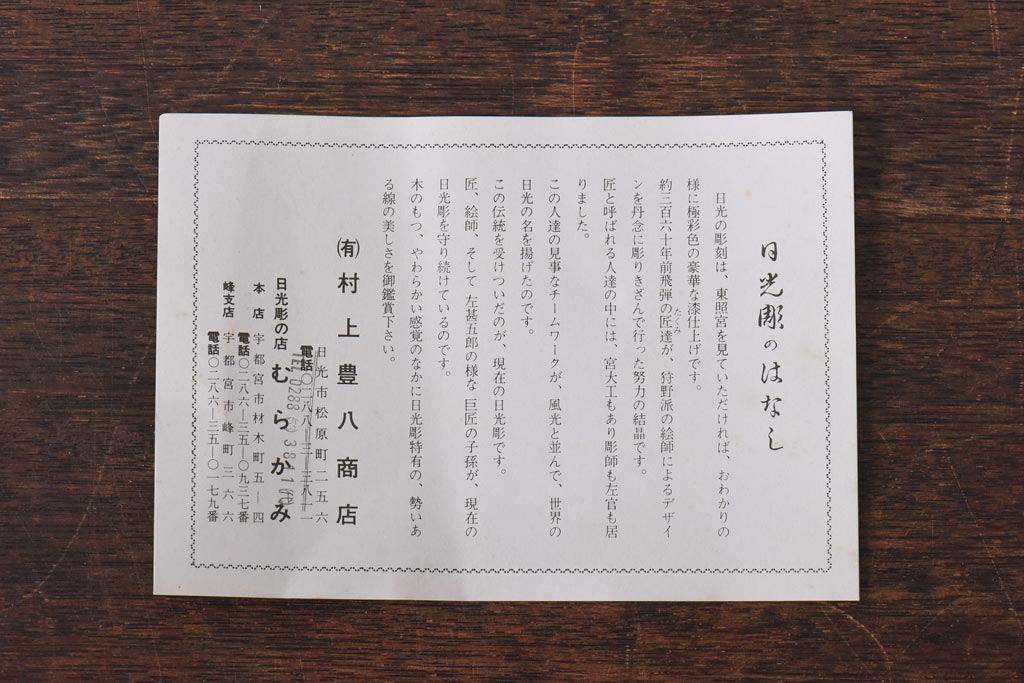 日光彫のはなし
日光の彫刻は、東照宮を見ていただければ、おわかりの
様に極彩色の豪華な漆仕上げです。
約三百六十年前飛弾の匠達が、狩野派の絵師によるデザイ
たくみ
ンを丹念に彫りきざんで行った努力の結晶です。
匠と呼ばれる人達の中には、宮大工もあり彫師も左官も居
りました。
この人達の見事なチームワークが、風光と並んで、世界の
日光の名を揚げたのです。
この伝統を受けついだのが、現在の日光彫です。
匠、絵師、そして 左甚五郎の様な 巨匠の子孫が、現在の
日光彫を守り続けているのです。
木のもつ、やわらかい感覚のなかに日光彫特有の、勢いあ
る線の美しさを御鑑賞下さい。
㈲村上豊八商店
日光市松原町二五六
電話〇二八八―三―三八一一
TEL 0288 3811
日光彫の店 むらかみ
本店 宇都宮市材木町五―四
電話〇二八六―三五―〇九三七番
峰支店 宇都宮市峰町三六六
電話〇二八六―三五―〇一七九番